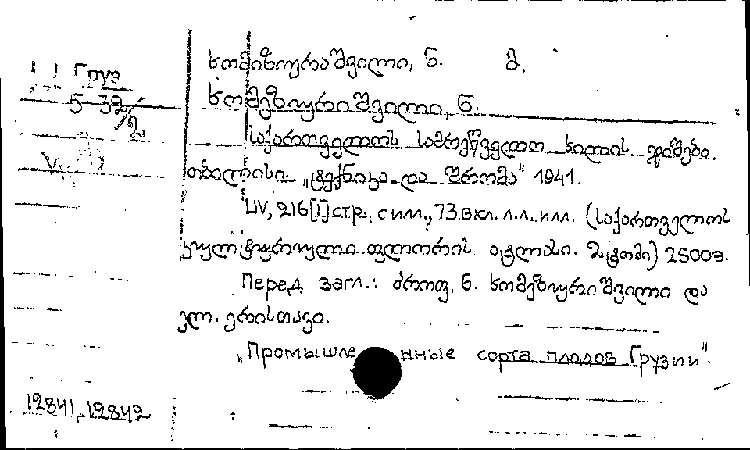 Груз
5-32/2
ხომიზურაშვილი, ნ. მ.
ხომეზიურიშვილი, ნ.
საქართველოს სამრეწველო ხილის ჯიშები.
თბილისი. „ტექნიკა და შრომა" 1941.
LIV, 216[1] стр. с илл., 73 вкл. л. л. илл. (საქართველოს
კულტურული ფლორის ატლასი. მაკეთი) 2500э.
Перед загл.: პროფ. ნ. ხომეზიურიშვილი და
ელ. ერისთავი.
„Промышленные сорта плодов Грузии".
12841, 12842